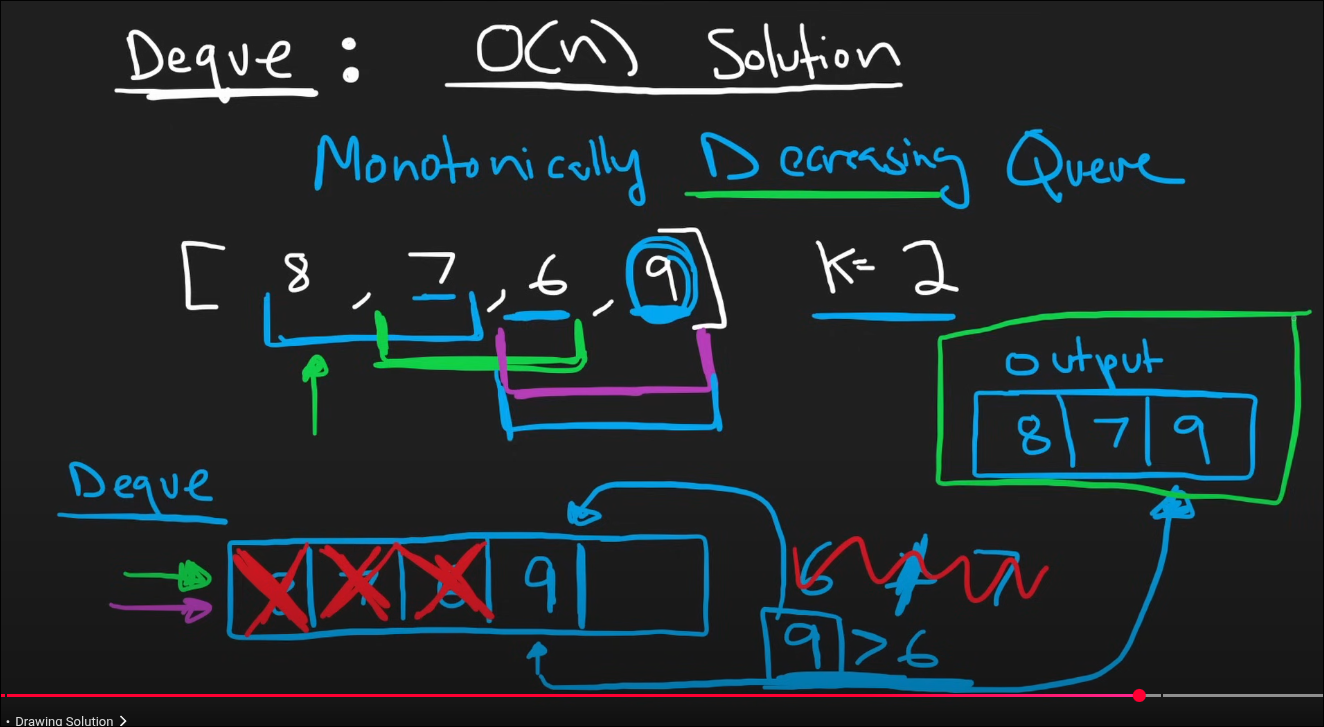 Deque : O(n) Solution
Monotonically Decreasing Queue
[ 8 , 7 , 6 , 9 ] K= 2
output
8 7 9
Deque
9
6 7
9 > 6
• Drawing Solution >